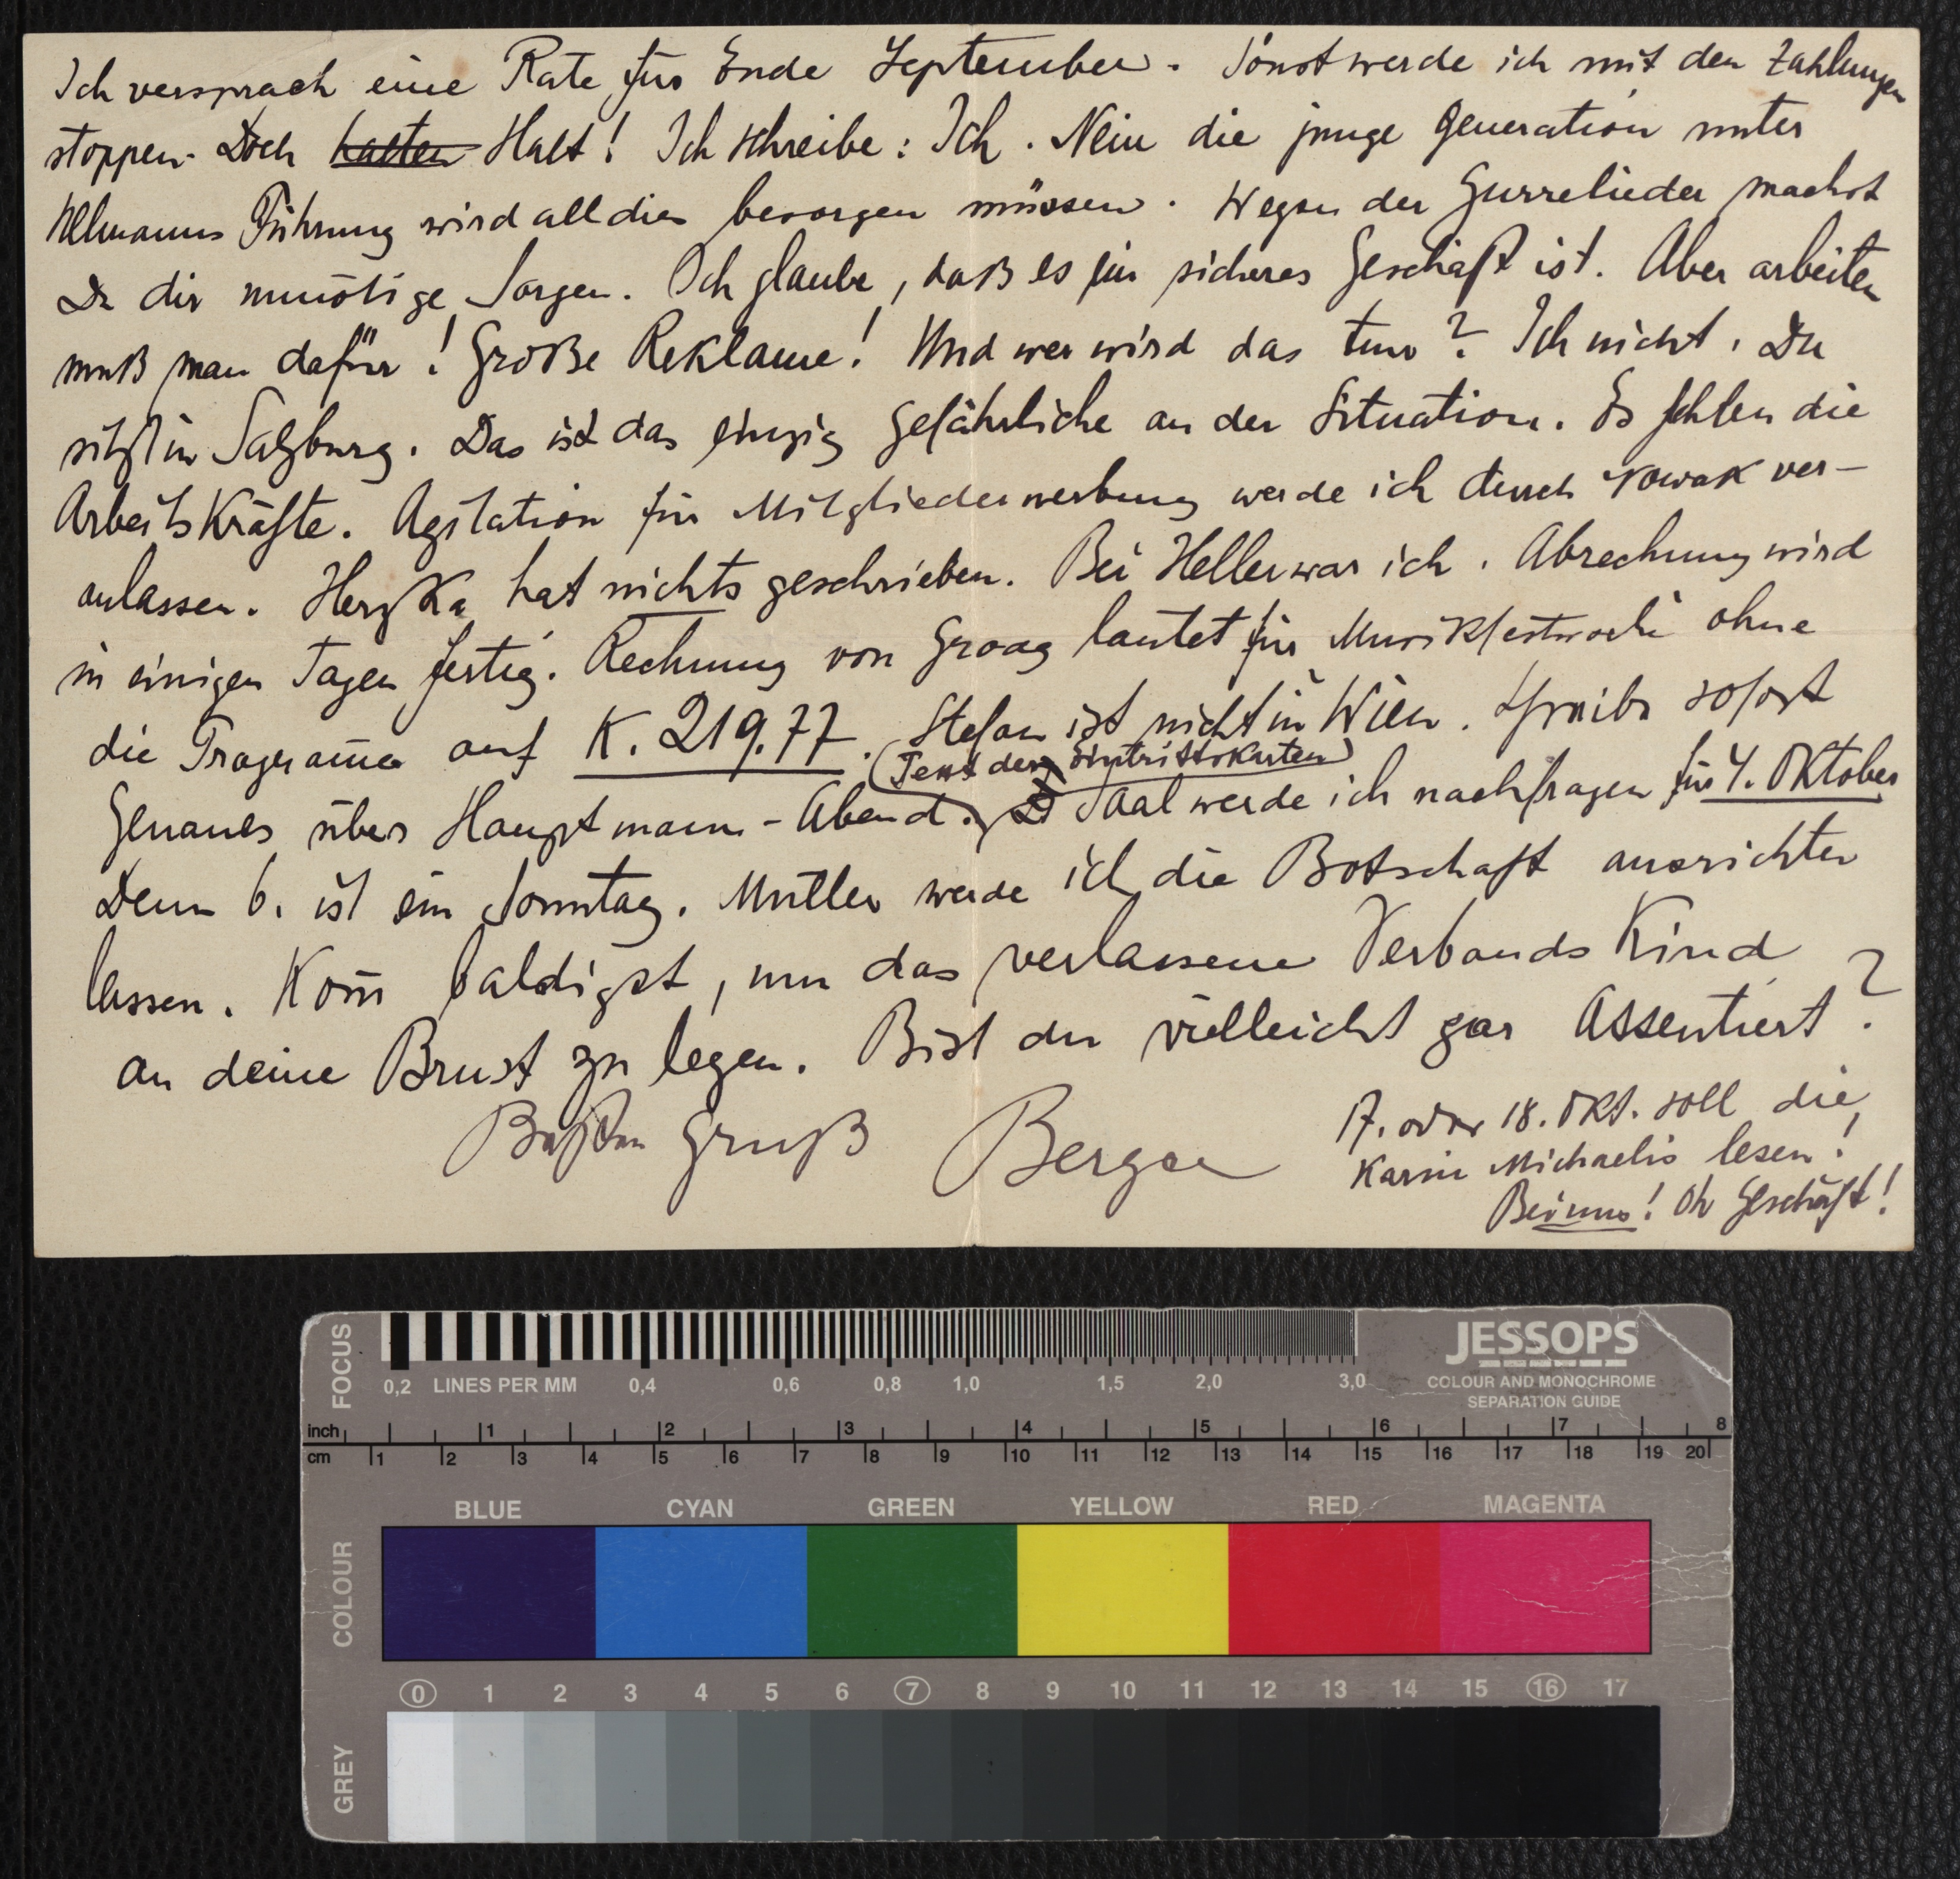 Ich versprach eine Rate für Ende September. Sonst werde ich mit den Zahlungen
stoppen. Doch halten Halt! Ich schreibe: Ich. Nein die junge Generation unter
Ullmanns Führung wird all dies besorgen müssen. Wegen der Gurrelieder machst
Du dir unnötige Sorgen. Ich glaube, daß es ein sicheres Geschäft ist. Aber arbeiten
muß man dafür! Große Reklame! Und wer wird das tun? Ich nicht. Du
sitzt in Salzburg. Das ist das einzig Gefährliche an der Situation. Es fehlen die
Arbeitskräfte. Agitation für Mitgliederwerbung werde ich durch Nowak ver-
anlassen. Herzka hat nichts geschrieben. Bei Heller war ich. Abrechnung wird
in einigen Tagen fertig. Rechnung von Groag lautet für Musikfestwoche ohne
die Programme auf K. 219.77. Stefan ist nicht in Wien. Schreibe sofort
(Text der Eintrittskarten)
Genaues über Hauptmann-Abend. Saal werde ich nachfragen für 4. Oktober
Denn 6. ist ein Sonntag. Mutter werde ich die Botschaft ausrichten
lassen. Kom̄ baldigst, um das verlassene Verbands Kind
an deine Brust zu legen. Bist du vielleicht gar Assentiert?
Besten Gruß
17. oder 18. Okt. soll die
Karin Michaelis lesen!
Bei uns! Oh Geschäft!
FOCUS
0,2 LINES PER MM 0,4 0,6 0,8 1,0 1,5 2,0 3,0
JESSOPS
COLOUR AND MONOCHROME
SEPARATION GUIDE
inch 1 2 3 4 5 6 7 8
cm 1 2 3 4 5 6 7 8 9 10 11 12 13 14 15 16 17 18 19 20
COLOUR
BLUE CYAN GREEN YELLOW RED MAGENTA
0 1 2 3 4 5 6 7 8 9 10 11 12 13 14 15 16 17
GREY